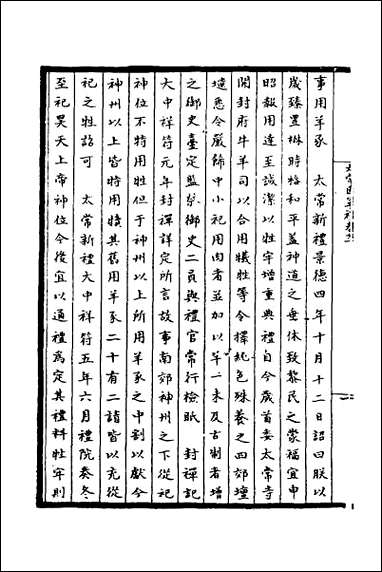 事用羊豕　太常新禮景德四年十月十二日詔曰朕以
歲臻置楙時格和平蓋神道之垂休致黎民之蒙福宜申
昭報用達至誠潔以牲牢增重典禮自今歲首委太常寺
開封府牛羊司以合用犧牲等令擇純色殊養之四郊壇
壝悉令嚴飾中小祀用肉者並加以羊一未及古制者增
之御史臺定監察御史二員與禮官常行檢眡　封禪記
大中祥符元年封禪詳定所言故事南郊神州之下從祀
神位不特用牲但于神州以上所用羊豕之中割以獻今
神州以上皆特用犢其舊用羊豕二十有二請皆以充從
祀之牲詔可　太常新禮大中祥符五年六月禮院奏冬
至祀昊天上帝神位今後宜以通禮爲定其禮料牲牢則